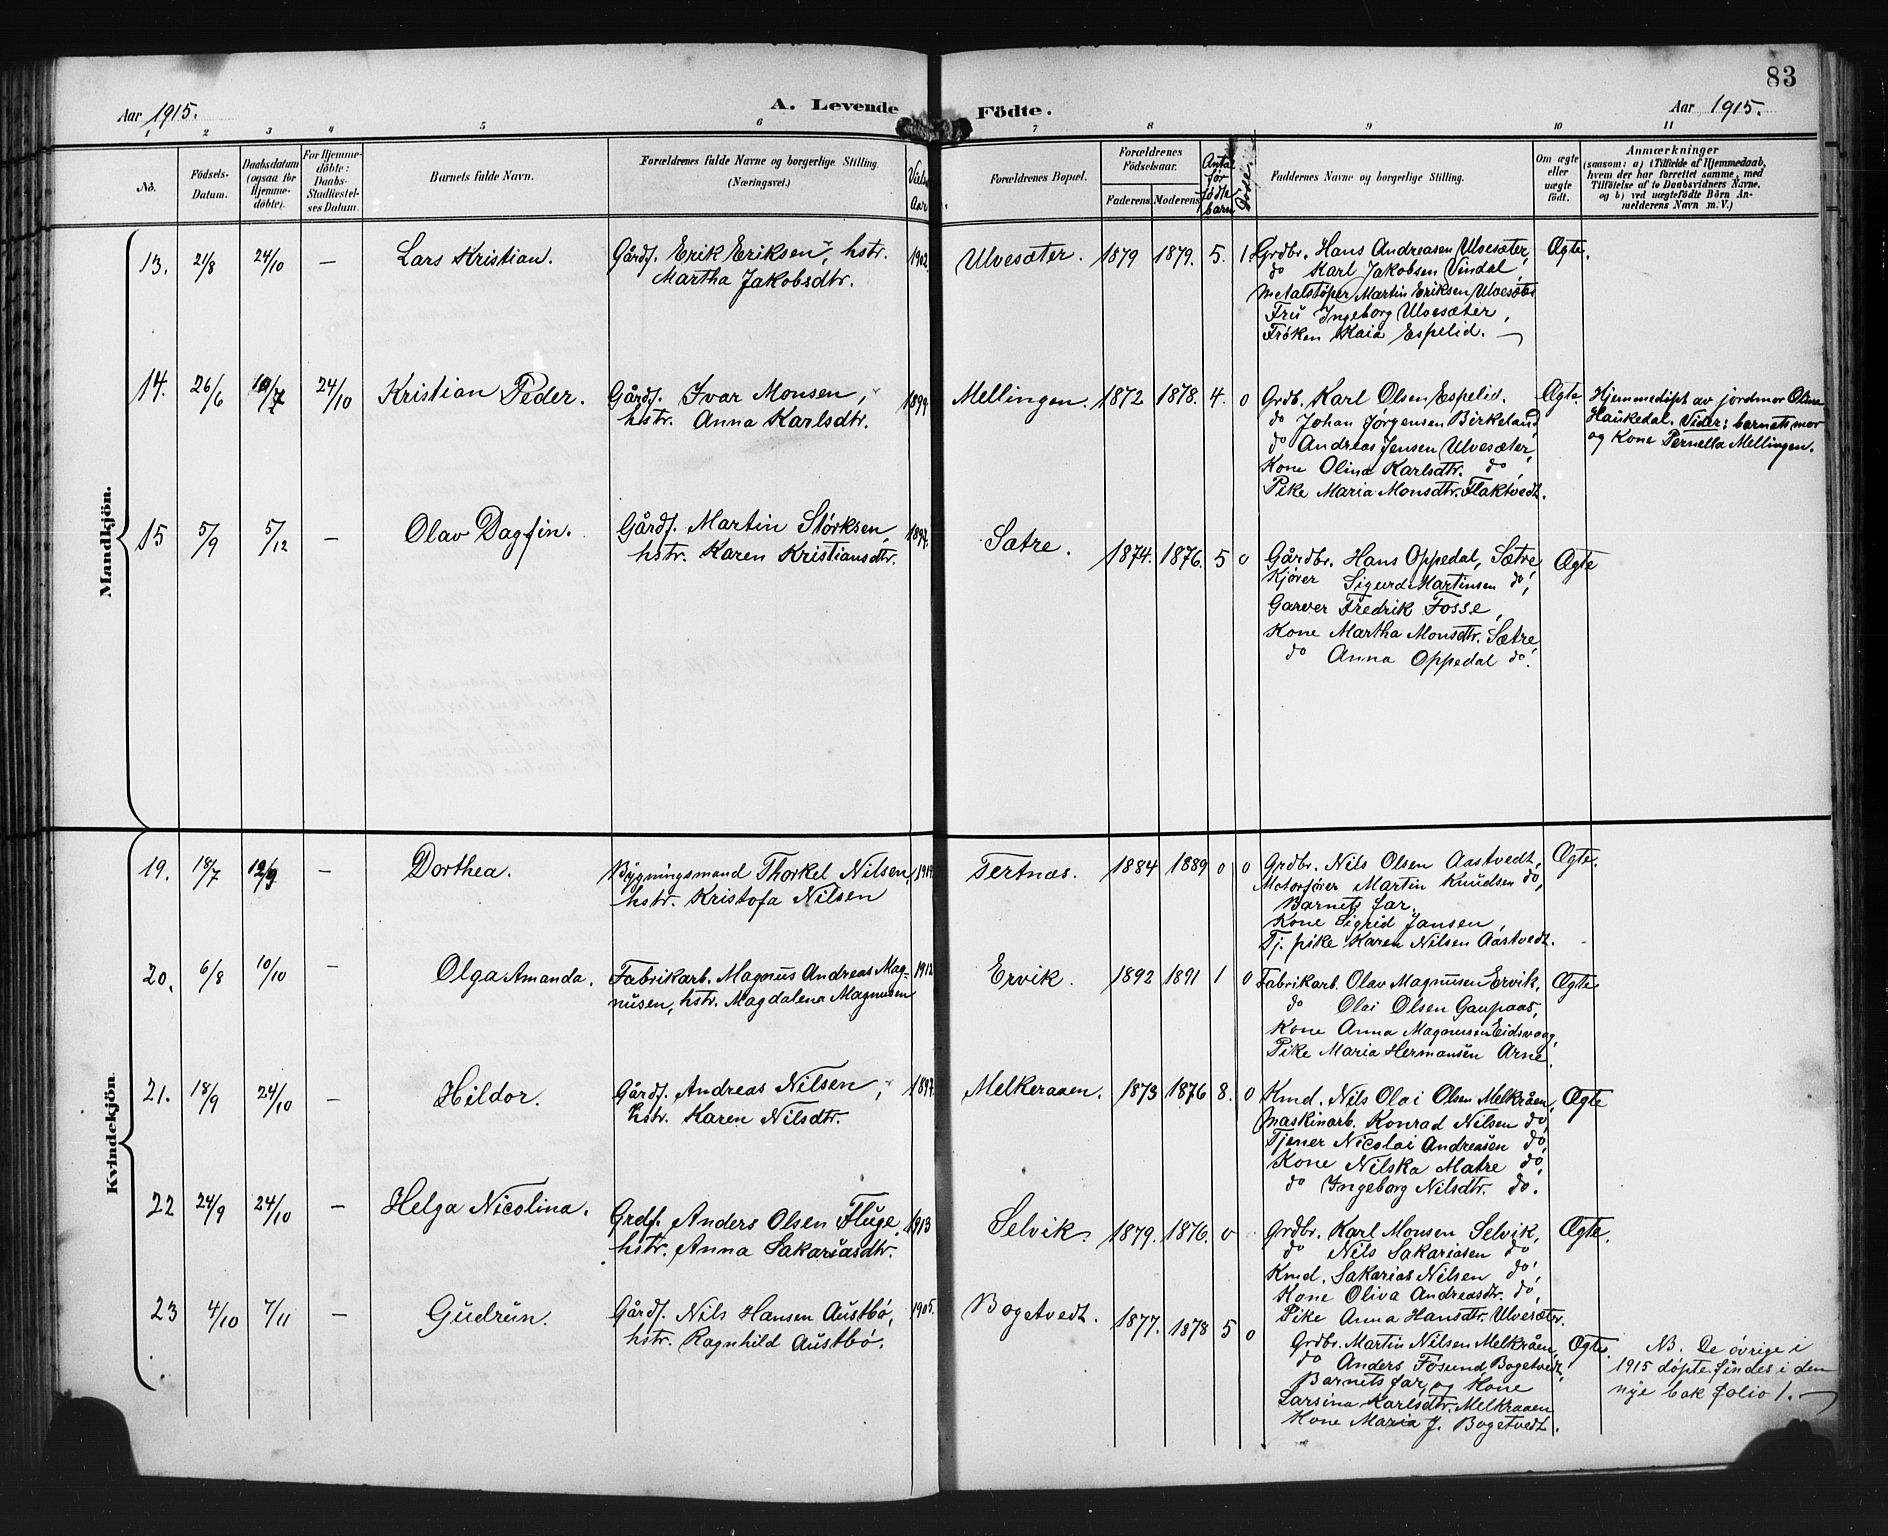 83
Aar 1915.
A. Levende Födte.
Aar 1915.
1 2 3 4 5 6 7 8 9 10 11
No.
Födsels-
Datum.
Daabsdatum
(ogsaa for
Hjemme-
döbte).
For Hjemme-
döbte:
Daabs-
Stadfæstel-
ses Datum.
Barnets fulde Navn.
Forældrenes fulde Navne og borgerlige Stilling.
(Næringsvei.)
Vielses
Aar
Forældrenes Bopæl.
Forældrenes
Födselsaar.
Faderens Moderens
Antal
før
fødte
barn
Døde
Faddernes Navne og borgerlige Stilling.
Om ægte
eller
uægte
födt.
Anmærkninger
(saasom: a) i Tilfælde af Hjemmedaab,
hvem der har forrettet samme, med
Tilføielse af to Daabsvidners Navne,
og b) ved uægtefödte Börn An-
melderens Navn m. V.)
Mandkjön.
13. 21/8 24/10 — Lars Kristian. Gårdf. Erik Eriksen, hstr. 1902. Ulvesæter. 1879 1879. 5. 1 Grdbr. Hans Andreasen Ulvesæter, Ægte.
Martha Jakobsdtr. do Karl Jakobsen Vindal,
Metalstøper Martin Eriksen Ulvesæter
Fru Ingeborg Ulvesæter,
Frøken Kaia Espelid. —
14. 26/6 10/7 24/10 Kristian Peder. Gårdf. Ivar Monsen, 1899. Mellingen. 1872 1878. 4. 0 Grdb. Karl Olsen Espelid. Ægte. Hjemmedøpt av jordmor Olina
hstr. Anna Karlsdtr. do Johan Jørgensen Birkeland, Haukedal. Vider: barnets mor
do Andreas Jensen Ulvesæter, og Kone Pernella Mellingen.
Kone Olina Karlsdtr. do,
Pike Maria Monsdtr. Flaktvedt.
15 5/9 5/12 — Olav Dagfin. Gårdf. Martin Størksen, 1897. Sætre. 1874. 1876. 5 0 Gårdbr. Hans Oppedal, Sætre Ægte
hstr. Karen Kristiansdtr. Kjører Sigurd Martinsen do,
Garver Fredrik Fosse,
Kone Martha Monsdtr. Sætre
do Anna Oppedal do.
Kvindekjön.
19. 18/7 12/9 — Dorthea. Bygningsmand Thorkel Nilsen, 1914. Tertnæs. 1884 1889 0 0 Grdbr. Nils Olsen Aastvedt, Ægte.
hstr. Kristofa Nilsen Motorfører Martin Knudsen do,
Barnets far,
Kone Sigrid Jansen,
Tj. pike Karen Nilsen Aastvedt.
20. 6/8 10/10 — Olga Amanda. Fabrikarb. Magnus Andreas Mag- 1912 Ervik. 1892 1891 1 0 Fabrikarb. Olav Magnusen Ervik, Ægte
nusen, hstr. Magdalena Magnusen do Olai Olsen Gaupaas,
Kone Anna Magnusen Eidsvaag,
Pike Maria Hermansen Arne.
21. 18/9 24/10 — Hildor. Gårdf. Andreas Nilsen, 1897. Melkeraaen. 1873 1876 8. 0 Kmd. Nils Olai Olsen Melkråen, Ægte
hstr. Karen Nilsdtr. Maskinarb. Konrad Nilsen do,
Tjener Nicolai Andreasen do,
Kone Nilska Matre do,
do Ingeborg Nilsdtr. do.
22 24/9 24/10 — Helga Nicolina. Grdf. Anders Olsen Fluge, 1913 Selvik. 1879. 1876. 0 Grdbr. Karl Monsen Selvik, Ægte.
hstr. Anna Sakariasdtr. do Nils Sakariasen do
Kmd. Sakarias Nilsen do,
Kone Oliva Andreasdtr. do,
Pike Anna Hansdtr. Ulvesæter.
23 4/10 7/11 — Gudrun. Gårdf. Nils Hansen Austbø, 1905. Bogetvedt. 1877. 1878 5 0 Grdbr. Martin Nilsen Melkråen, Ægte. NB. De øvrige i
hstr. Ragnhild Austbø. do Anders Fosund Bogetvedt, 1915 døpte findes i den
Barnets far, og Kone nye bok folio 1. —
Larsina Karlsdtr. Melkraaen
Kone Maria J. Bogetvedt.